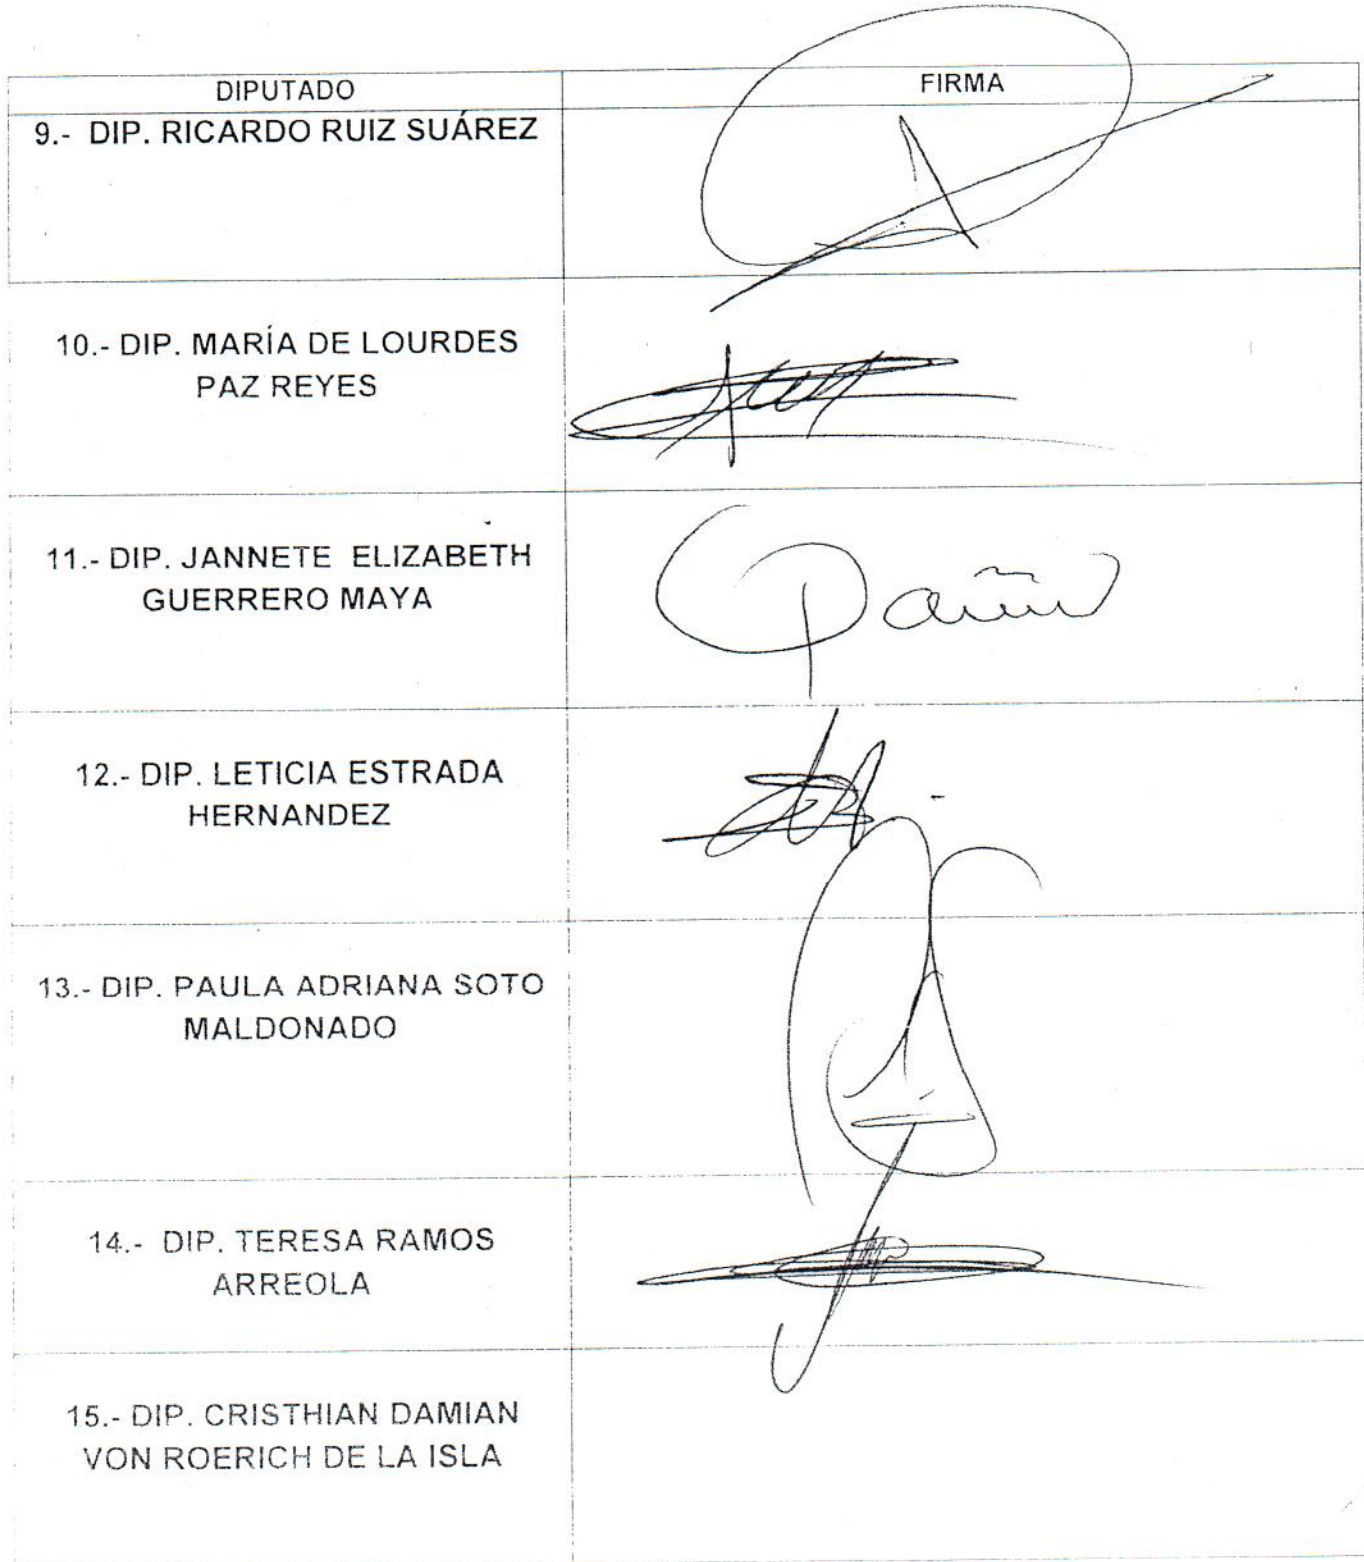 DIPUTADO
FIRMA
9.- DIP. RICARDO RUIZ SUÁREZ
10.- DIP. MARÍA DE LOURDES
PAZ REYES
11.- DIP. JANNETE ELIZABETH
GUERRERO MAYA
12.- DIP. LETICIA ESTRADA
HERNANDEZ
13.- DIP. PAULA ADRIANA SOTO
MALDONADO
14.- DIP. TERESA RAMOS
ARREOLA
15.- DIP. CRISTHIAN DAMIAN
VON ROERICH DE LA ISLA